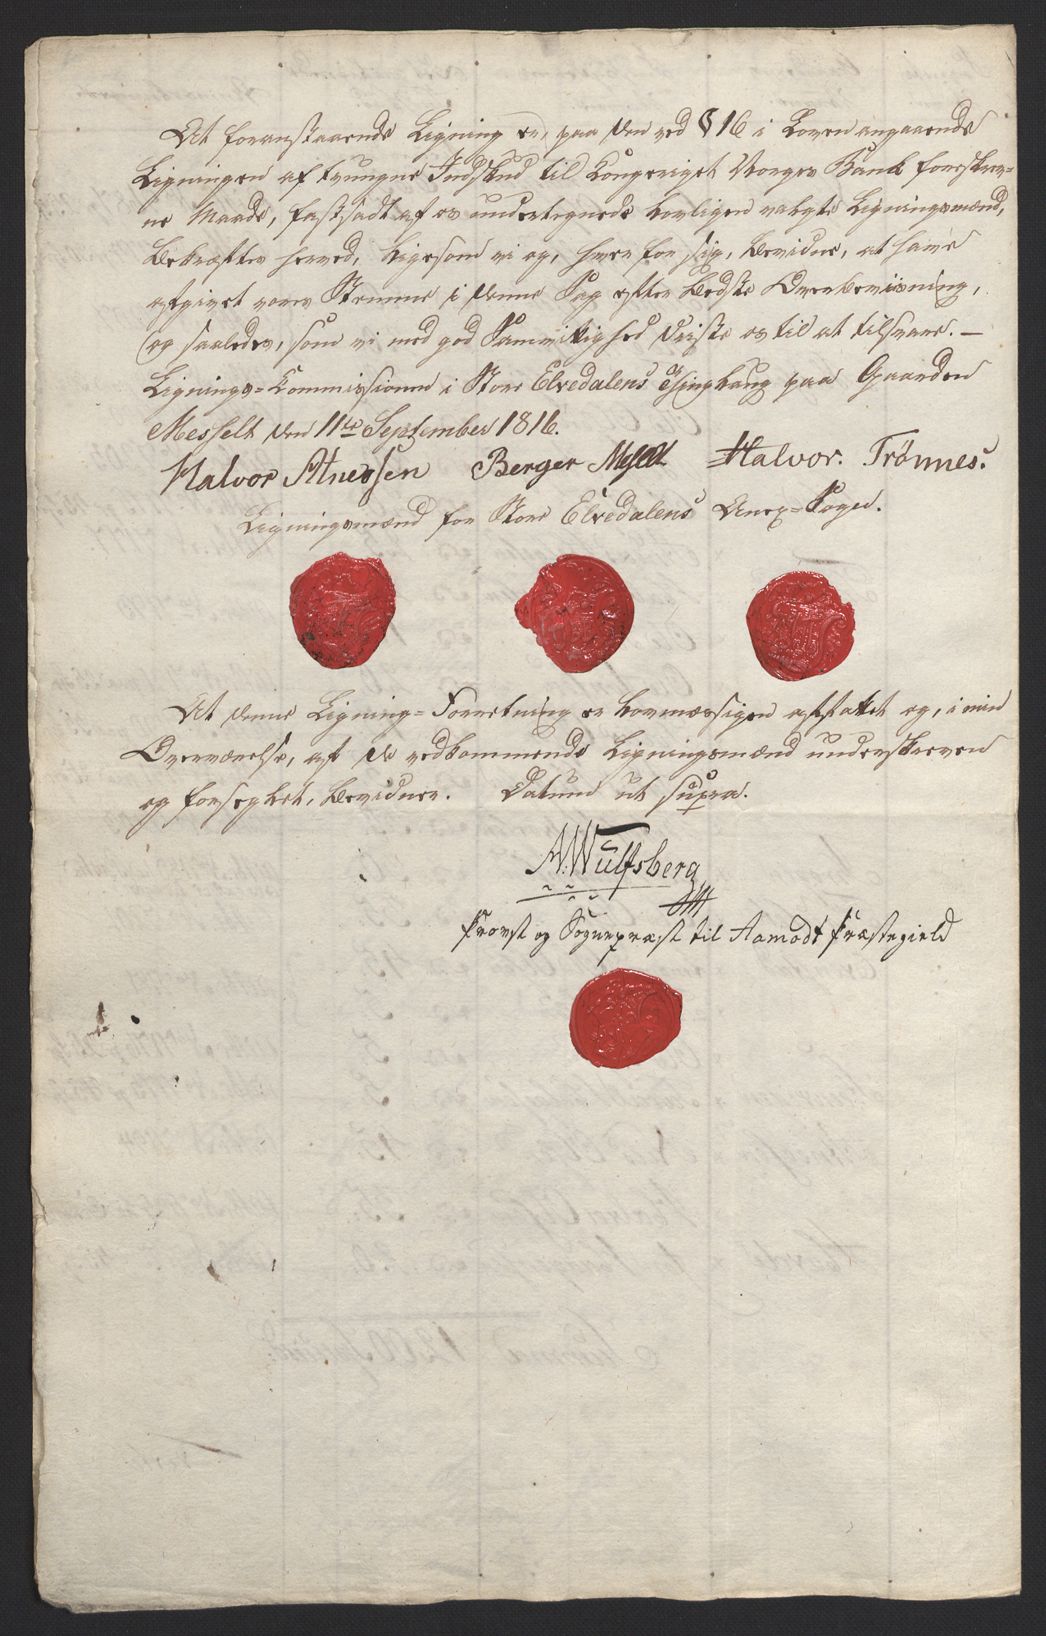 At foranstaaende Ligning er, paa den ved § 16 i Loven angaaende
Ligningen af tvungne Indskud til Kongeriget Norges Bank foreskrev-
ne Maade, fastsadt af os undertegnede lovligen valgte Ligningsmænd,
bekræftes herved, ligesom vi og, hver for sig, bevidne, at have
afgivet vores Stemme i denne Sag efter bedste Overbeviisning,
og saaledes, som vi med god Samvittighed trøste os til at tilsvare. –
Lignings-Commissionen i Store Elvedalens Thinglaug paa Gaarden
Messelt den 11te September 1816.
Halvor Atnessen Berger Messelt Halvor Trönnes.
Ligningsmænd for Store Elvedalens Annex-Sogn.
At denne Ligning-Forretning er lovmæssigen afsluttet og, i min
Overværelse, af de vedkommende Ligningsmænd underskreven
og forseglet, bevidner. Datum ut supra.
N. Wulfsberg
Provst og Sogneprest til Aamodt Præstegield